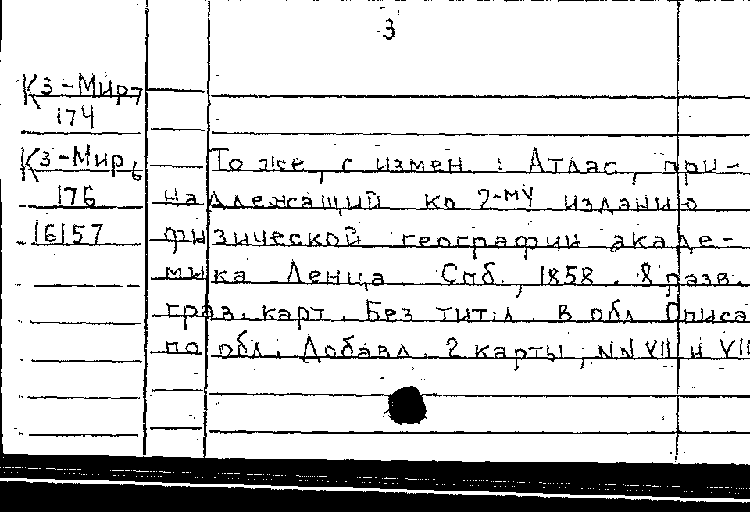 3
Кз-Мир 7
174
Кз-Мир 6
176
16157
То же, с измен.: Атлас, при-
надлежащий ко 2-му изданию
физической географии акаде-
мика Ленца. Спб., 1858. 8 разв.
грав. карт. Без тит. л. В обл. Описа
по обл. Добавл. 2 карты, NN VII и VII